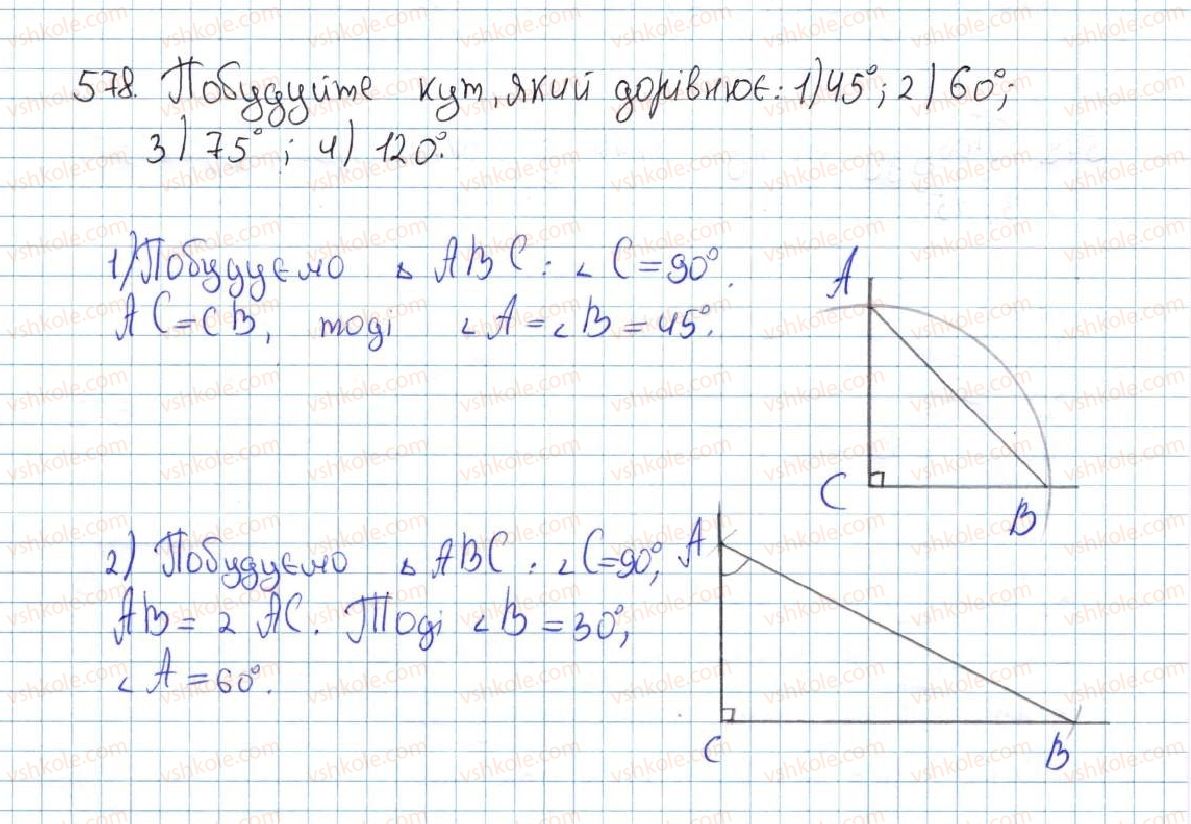 578. Побудуйте кут, який дорівнює: 1) 45°; 2) 60°;
3) 75°; 4) 120°.
1) Побудуємо △ ABC: ∠ C = 90°.
AC = CB, тоді ∠ A = ∠ B = 45°.
A
C
B
2) Побудуємо △ ABC: ∠ C = 90°,
AB = 2 AC. Тоді ∠ B = 30°,
∠ A = 60°.
A
C
B
vshkole.com